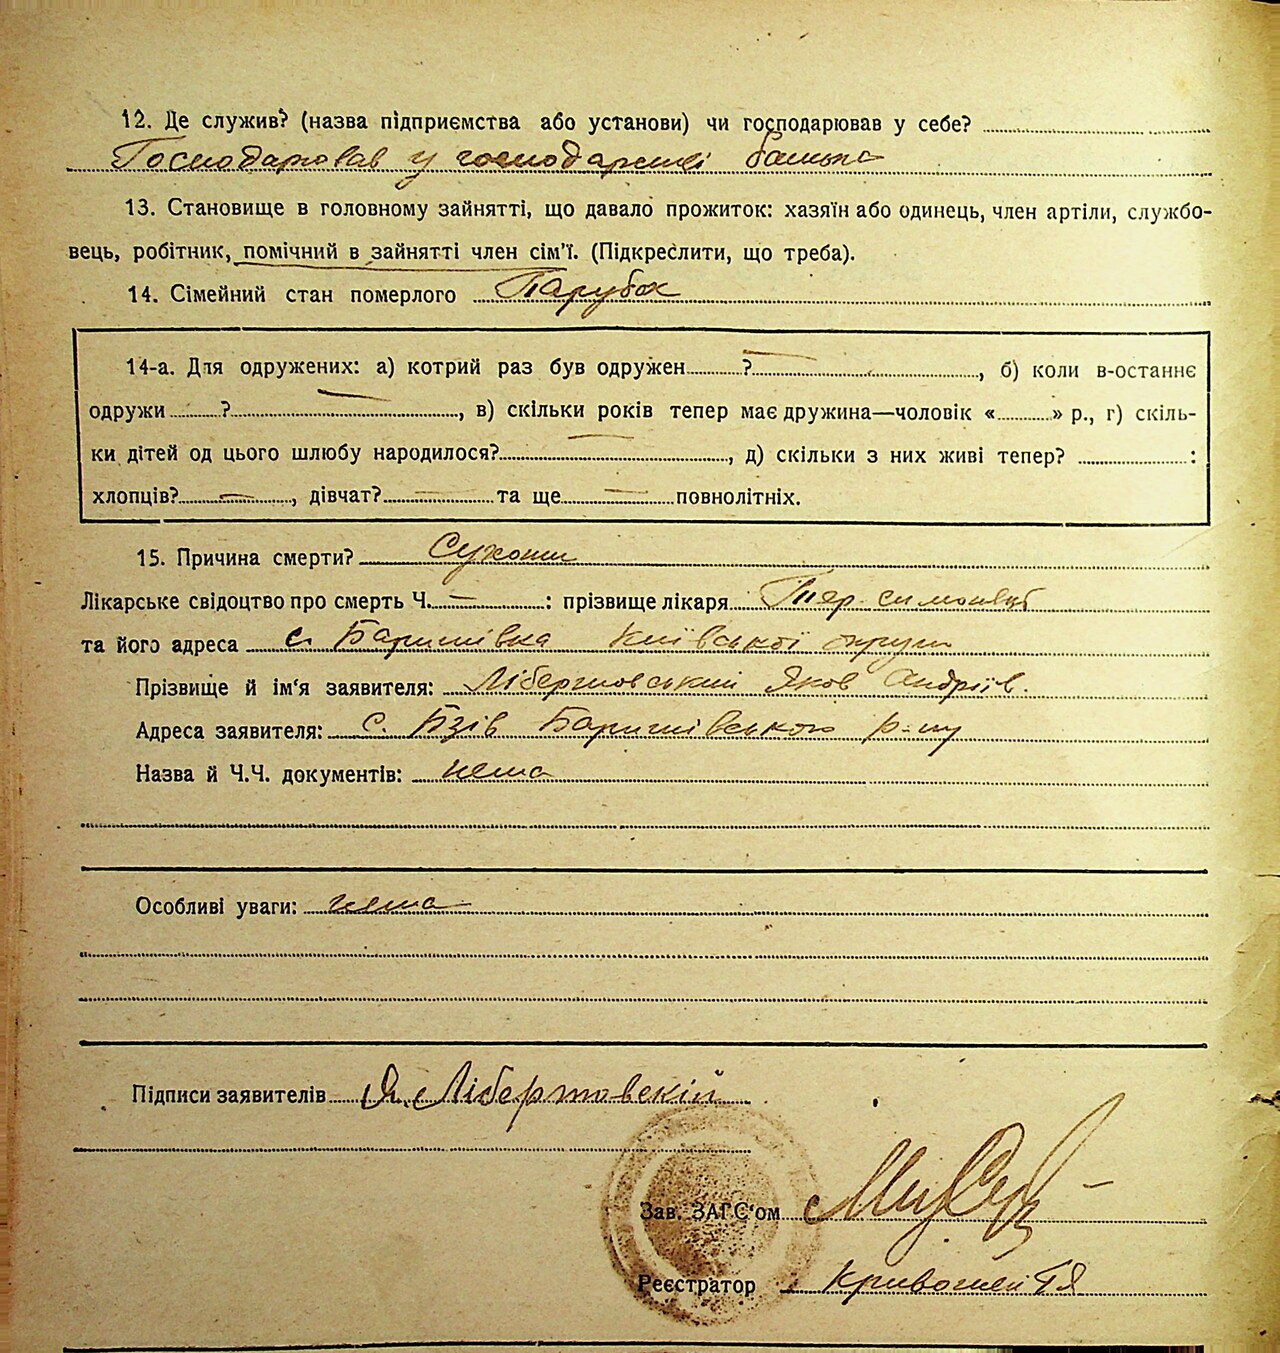 12. Де служив? (назва підприємства або установи) чи господарював у себе?
Господарював у господарстві батька
13. Становище в головному зайнятті, що давало прожиток: хазяїн або одинець, член артіли, службо-
вець, робітник, помічний в зайнятті член сім'ї. (Підкреслити, що треба).
14. Сімейний стан померлого Парубок
14-а. Для одружених: а) котрий раз був одружен ? —, б) коли в-останнє
одружи ? —, в) скільки років тепер має дружина—чоловік « » р., г) скіль-
ки дітей од цього шлюбу народилося? —, д) скільки з них живі тепер? :
хлопців? —, дівчат? — та ще — повнолітніх.
15. Причина смерти? Сухоти
Лікарське свідоцтво про смерть Ч. — : прізвище лікаря
та його адреса с. Баришівка Київської округи
Прізвище й ім'я заявителя: Лібертовський Яков Андріїв.
Адреса заявителя: с. Бзів Баришівського р-ну
Назва й Ч.Ч. документів: нема
Особливі уваги: нема
Підписи заявителів Я. Лібертовскій
Зав. ЗАГС'ом
Реєстратор Кривошей